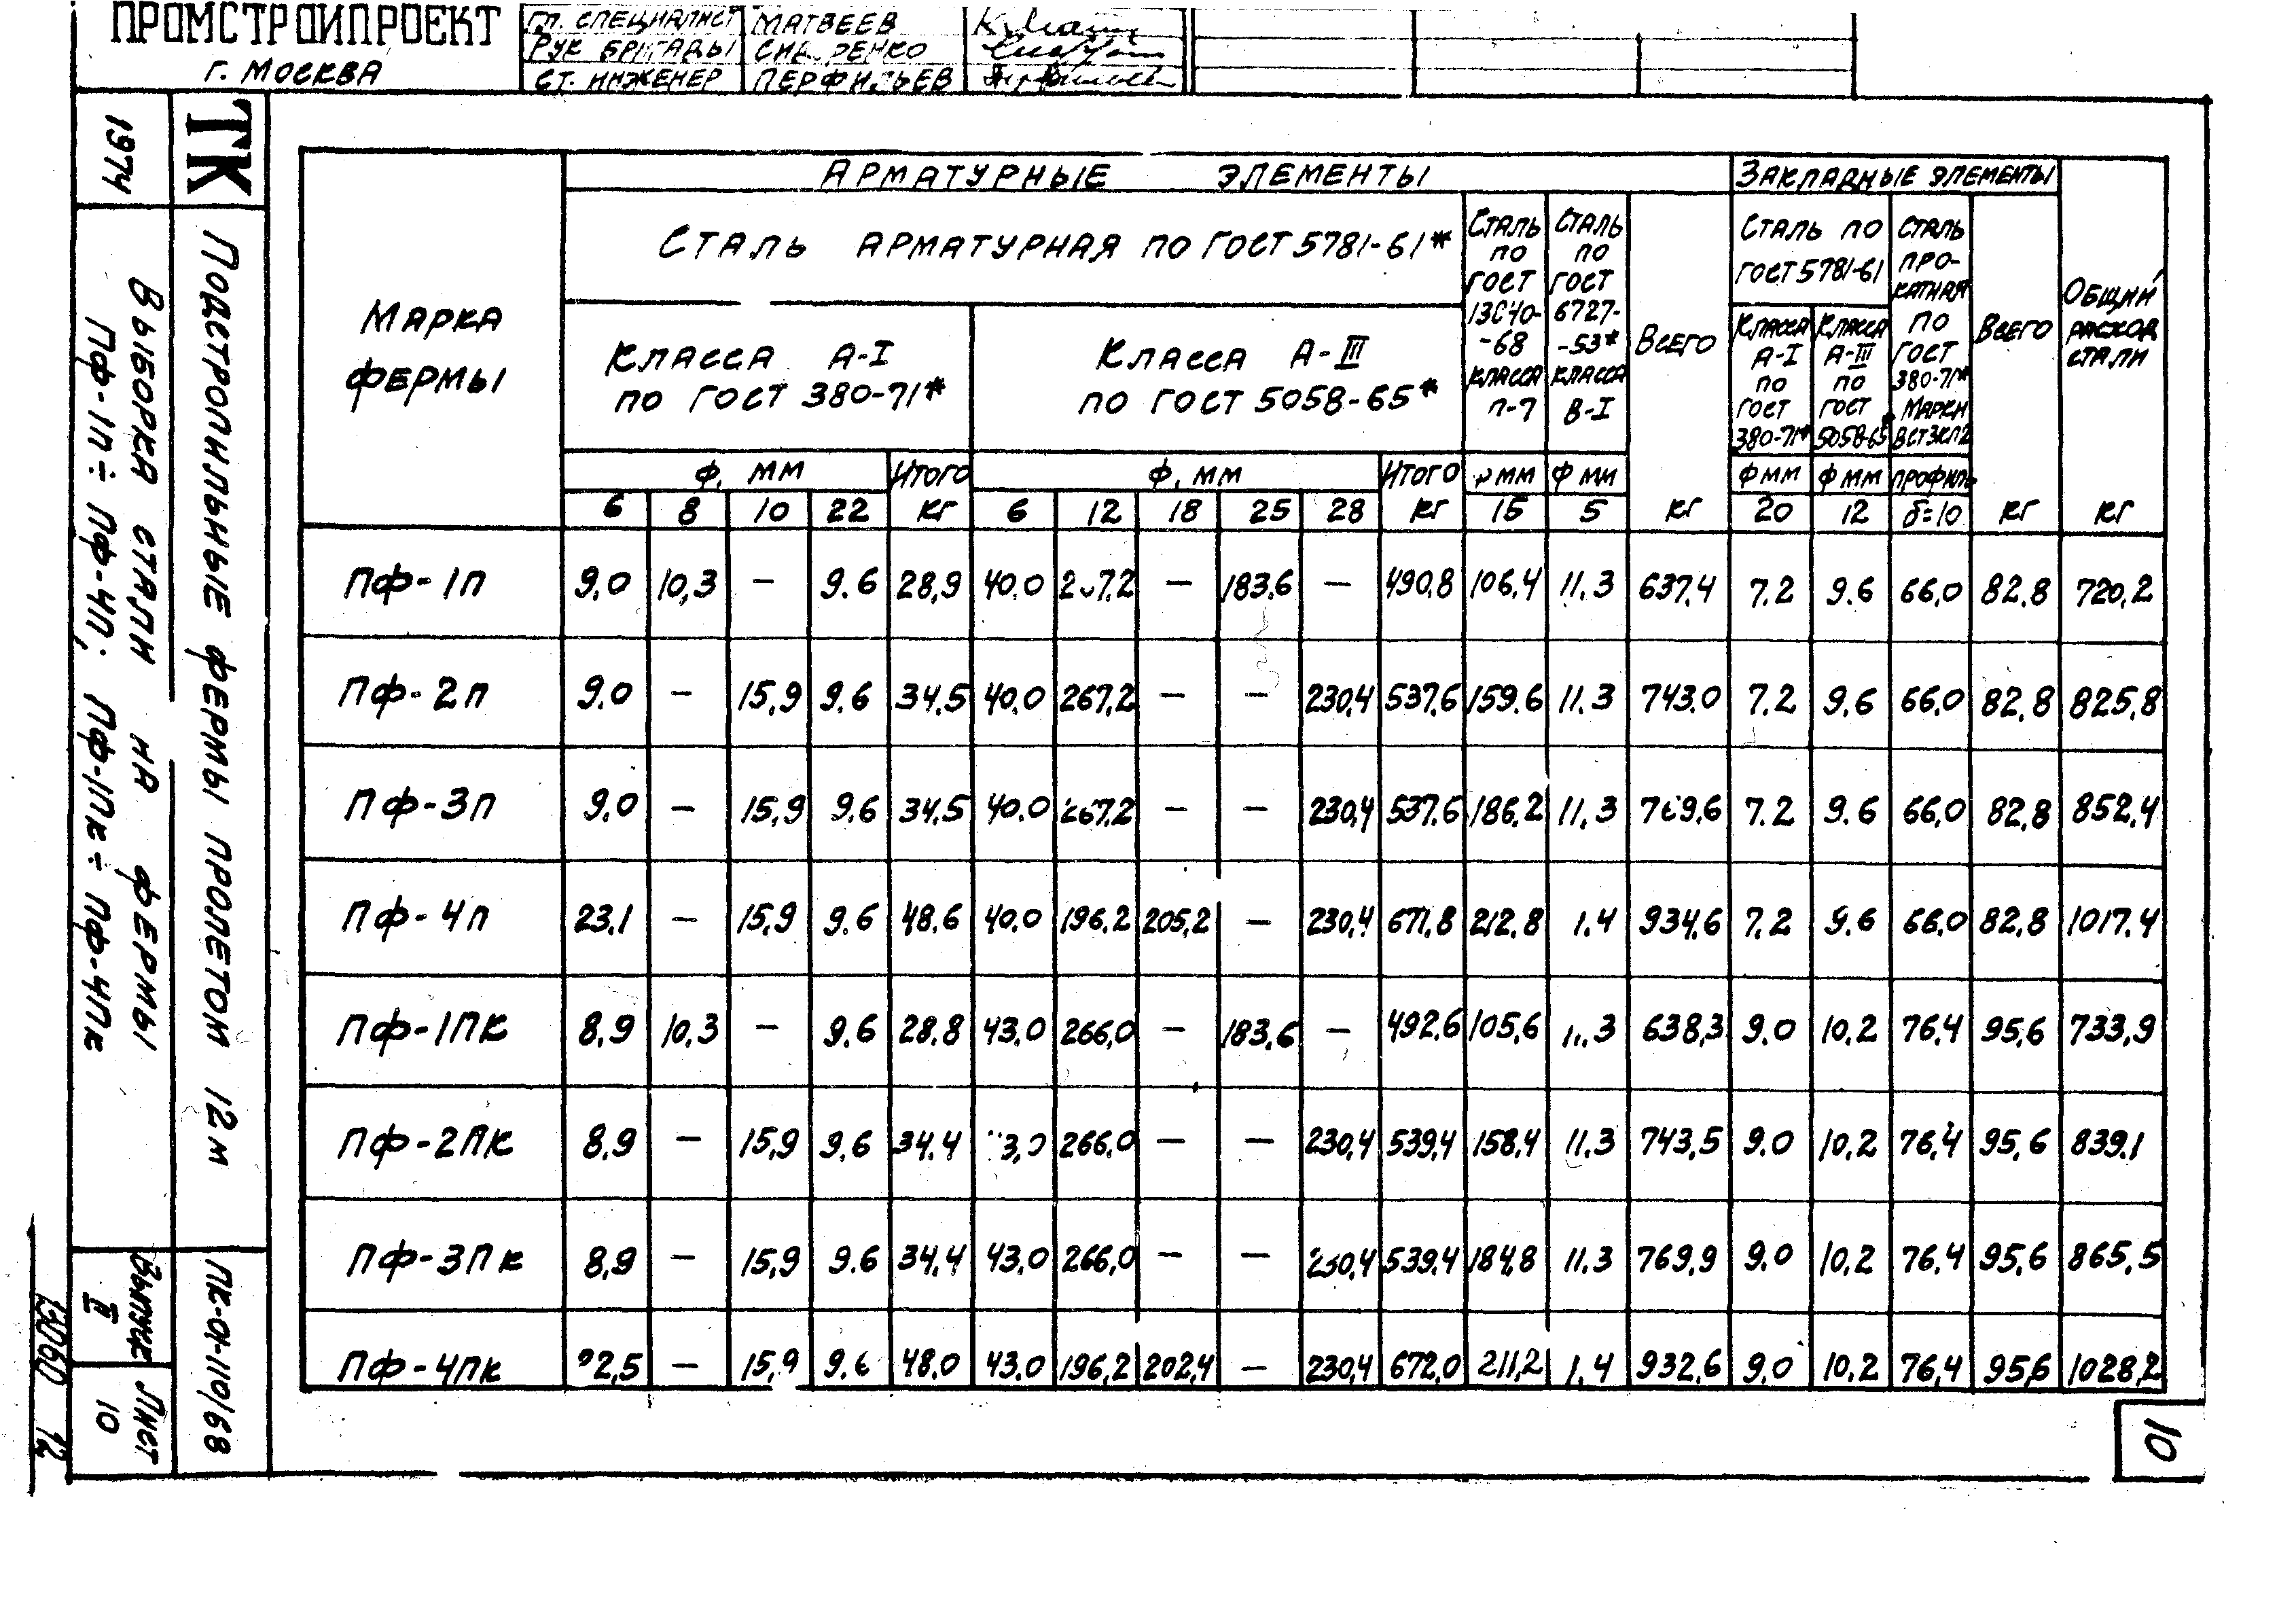 ПРОМСТРОЙПРОЕКТ
г. МОСКВА
ГЛ. СПЕЦИАЛИСТ МАТВЕЕВ
РУК БРИГАДЫ
СТ. ИНЖЕНЕР ПЕРФИЛЬЕВ
ТК
1974
ПОДСТРОПИЛЬНЫЕ ФЕРМЫ ПРОЛЕТОМ 12 м
ВЫБОРКА СТАЛИ НА ФЕРМЫ
ПФ-1П÷ПФ-4П; ПФ-1ПК÷ПФ-4ПК
ПК-01-110/68
ВЫПУСК
ЛИСТ
10
13060 12
АРМАТУРНЫЕ ЭЛЕМЕНТЫ ЗАКЛАДНЫЕ ЭЛЕМЕНТЫ
МАРКА ФЕРМЫ
СТАЛЬ АРМАТУРНАЯ ПО ГОСТ 5781-61*
КЛАССА А-I ПО ГОСТ 380-71*
КЛАССА А-III ПО ГОСТ 5058-65*
СТАЛЬ ПО ГОСТ 13840-68 КЛАССА П-7
СТАЛЬ ПО ГОСТ 6727-53* КЛАССА В-I
ВСЕГО
СТАЛЬ ПО ГОСТ 5781-61
КЛАССА А-I ПО ГОСТ 380-71*
КЛАССА А-III ПО ГОСТ 5058-65*
СТАЛЬ ПРОКАТНАЯ ПО ГОСТ 380-71* МАРКИ ВСТ3КП2
ВСЕГО
ОБЩИЙ РАСХОД СТАЛИ
Ф, ММ ИТОГО Ф, ММ ИТОГО ММ Ф ММ Ф ММ Ф ММ ПРОФИЛЬ
6 8 10 22 КГ 6 12 18 25 28 КГ 15 5 КГ 20 12 δ=10 КГ КГ
ПФ-1П 9.0 10,3 — 9.6 28,9 40.0 — 183.6 — 490,8 106,4 11.3 637.4 7.2 9.6 66,0 82.8 720,2
ПФ-2П 9.0 — 15,9 9.6 34.5 40.0 267,2 — — 230,4 537,6 159.6 11.3 743.0 7.2 9.6 66.0 82,8 825,8
ПФ-3П 9.0 — 15,9 9.6 34,5 40.0 267.2 — — 230,4 537.6 186.2 11.3 769.6 7.2 9.6 66,0 82,8 852,4
ПФ-4П 23,1 — 15,9 9.6 48.6 40.0 196.2 205,2 — 230,4 671,8 212.8 1.4 934,6 7.2 9.6 66.0 82,8 1017.4
ПФ-1ПК 8.9 10,3 — 9.6 28.8 43.0 266,0 — 183,6 — 492.6 105,6 11.3 638,3 9.0 10,2 76,4 95,6 733,9
ПФ-2ПК 8.9 — 15,9 9.6 34.4 266.0 — — 230,4 539,4 158,4 11.3 743,5 9.0 10,2 76,4 95,6 839.1
ПФ-3ПК 8,9 — 15,9 9.6 34,4 43.0 266,0 — — 230,4 539.4 184,8 11.3 769,9 9.0 10,2 76.4 95,6 865,5
ПФ-4ПК 22,5 — 15,9 9.6 48.0 43.0 196,2 202,4 — 230,4 672,0 211,2 1.4 932,6 9.0 10.2 76,4 95,6 1028,2
10